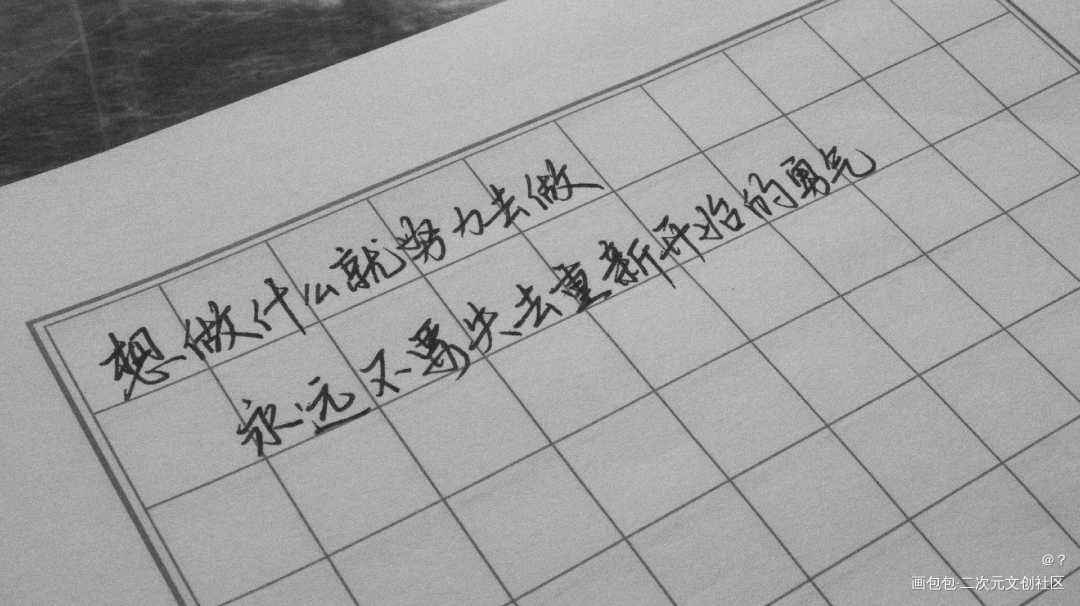 想做什么就努力去做
永远不要失去重新开始的勇气
@？
画包包·二次元文创社区